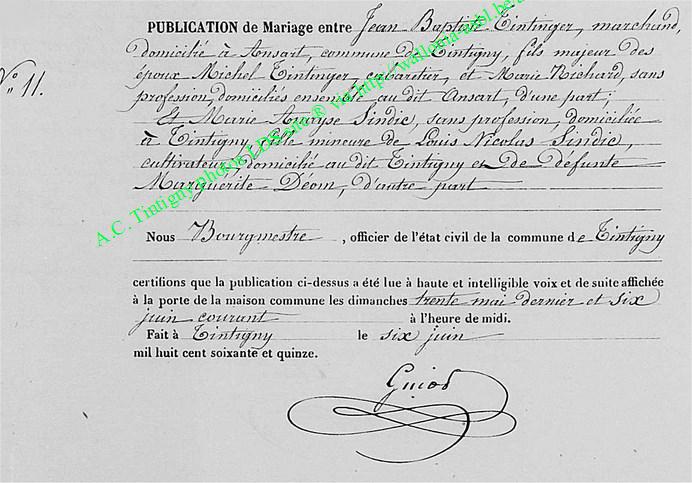 PUBLICATION de Mariage entre Jean Baptiste Tintinger, marchand,
domicilié à Ansart, commune de Tintigny, fils majeur des
époux Michel Tintinger, cabaretier, et Marie Richard, sans
Nº 11.
profession, domiciliés ensemble au dit Ansart, d'une part;
Et Marie Sindic, sans profession, domiciliée
à Tintigny, fille mineure de Louis Nicolas Sindic,
cultivateur, domicilié au dit Tintigny et de défunte
Marguerite Déom, d'autre part
Nous Bourgmestre, officier de l'état civil de la commune de Tintigny
certifions que la publication ci-dessus a été lue à haute et intelligible voix et de suite affichée
à la porte de la maison commune les dimanches trente mai dernier et six
juin courant à l'heure de midi.
Fait à Tintigny le six juin
mil huit cent soixante et quinze.
Guiot
A.C. Tintigny photos LDS site ® via http://wallonia-asbl.be